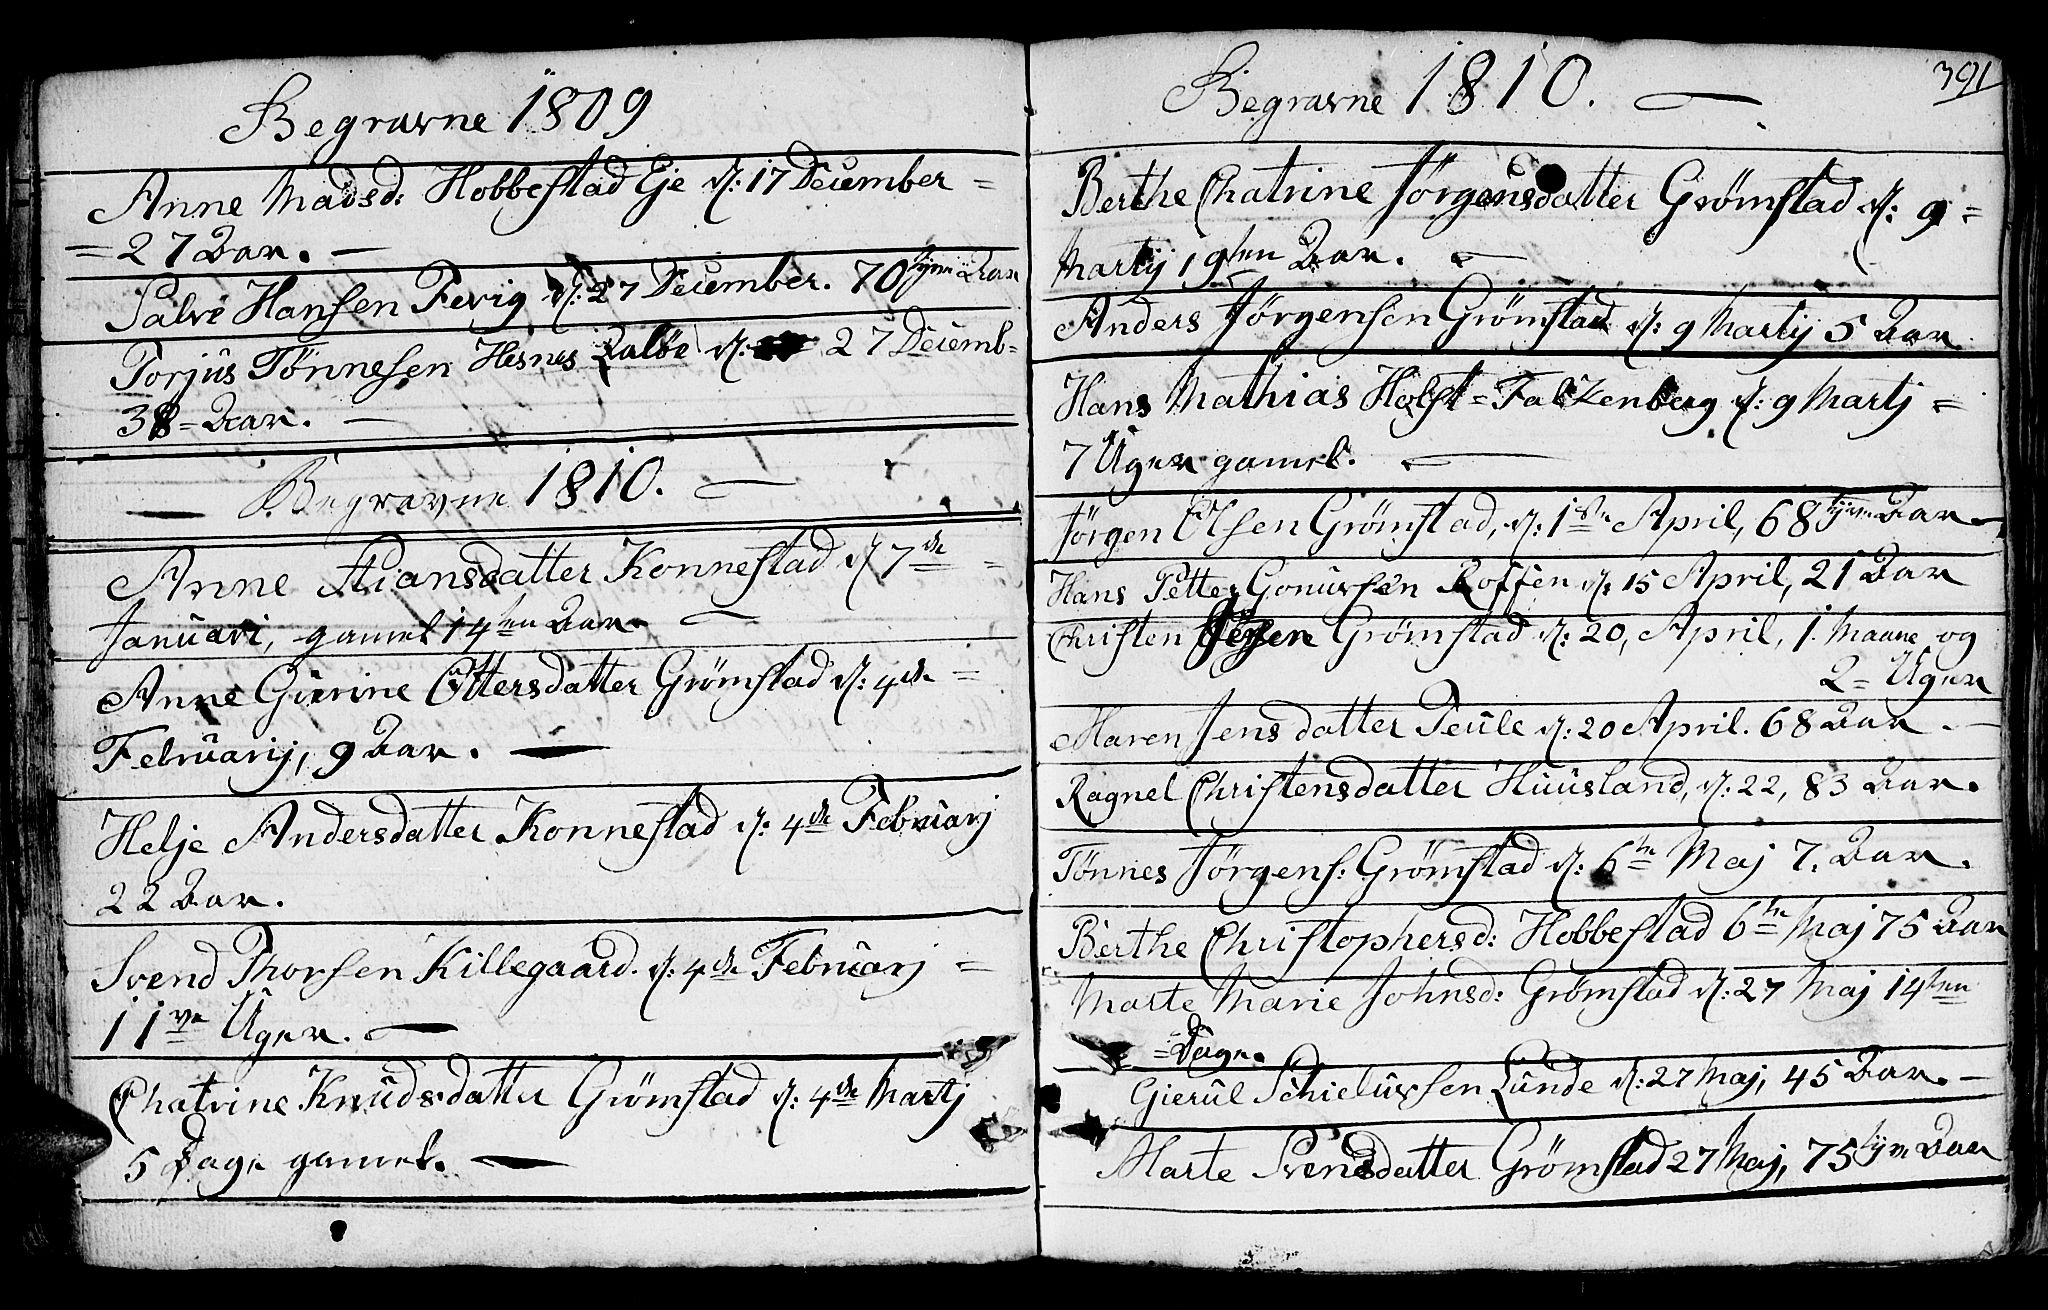 Begravne 1809
Anne Madsd: Hobbestad Eje d: 17 December =
= 27 Aar. —
Salve Hansen Fevig d: 27 December. 70tyve Aar
Torjus Tønnesen Hesnes d: 27 Decemb=
38 = Aar. —
— Begravne 1810. —
Anne Stiansdatter Konnestad d 7de =
Januari, gamel 14ten Aar —
Anne Gurine Ottersdatter Grømstad d: 4de =
Februarij, 9 Aar. —
Helje Andersdatter Konnestad d: 4de Februarj
22 Aar.
Svend Thorsen Killegaard. d: 4de Februarj =
11ve Uger. —
Chatrine Knudsdatter Grømstad d: 4de Martj
5 Dage gamel. —
391
Begravne 1810. —
Berthe Chatrine Jørgensdatter Grømstad d: 9 =
Martij 19ten Aar. —
Anders Jørgensen Grømstad d: 9 Martij 5 Aar.
Hans Mathias Holst = Falkenberg d: 9 Martj =
7 Uger gamel. —
Jørgen Olsen Grømstad, d: 1ste April, 68 tyve Aar —
Hans Petter Roffen d: 15 April, 21 Aar
Christen Grømstad d: 20, April, 1. Maane og
2 = Uger
Maren Jensdatter Teule d: 20 April. 68 Aar. —
Ragnel Christensdatter Huusland, d: 22, 83 Aar.
Tønnes Jørgens: Grømstad d: 6te Maj 7. Aar.
Berthe Christophersd: Hobbestad 6te Maj 75 Aar
Marte Marie Johnsd: Grømstad d: 27 Maj 14ten
= Dage.
Gierul Schielufsen Lunde d: 27 Maj, 45 Aar. —
Marte Svensdatter Grømstad 27 Maj, 75 tyve Aar